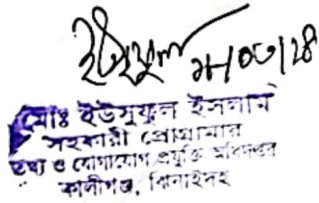 মোঃ ইউসুফুল ইসলাম
সহকারী প্রোগ্রামার
তথ্য ও যোগাযোগ প্রযুক্তি অধিদপ্তর
কালীগঞ্জ, ঝিনাইদহ